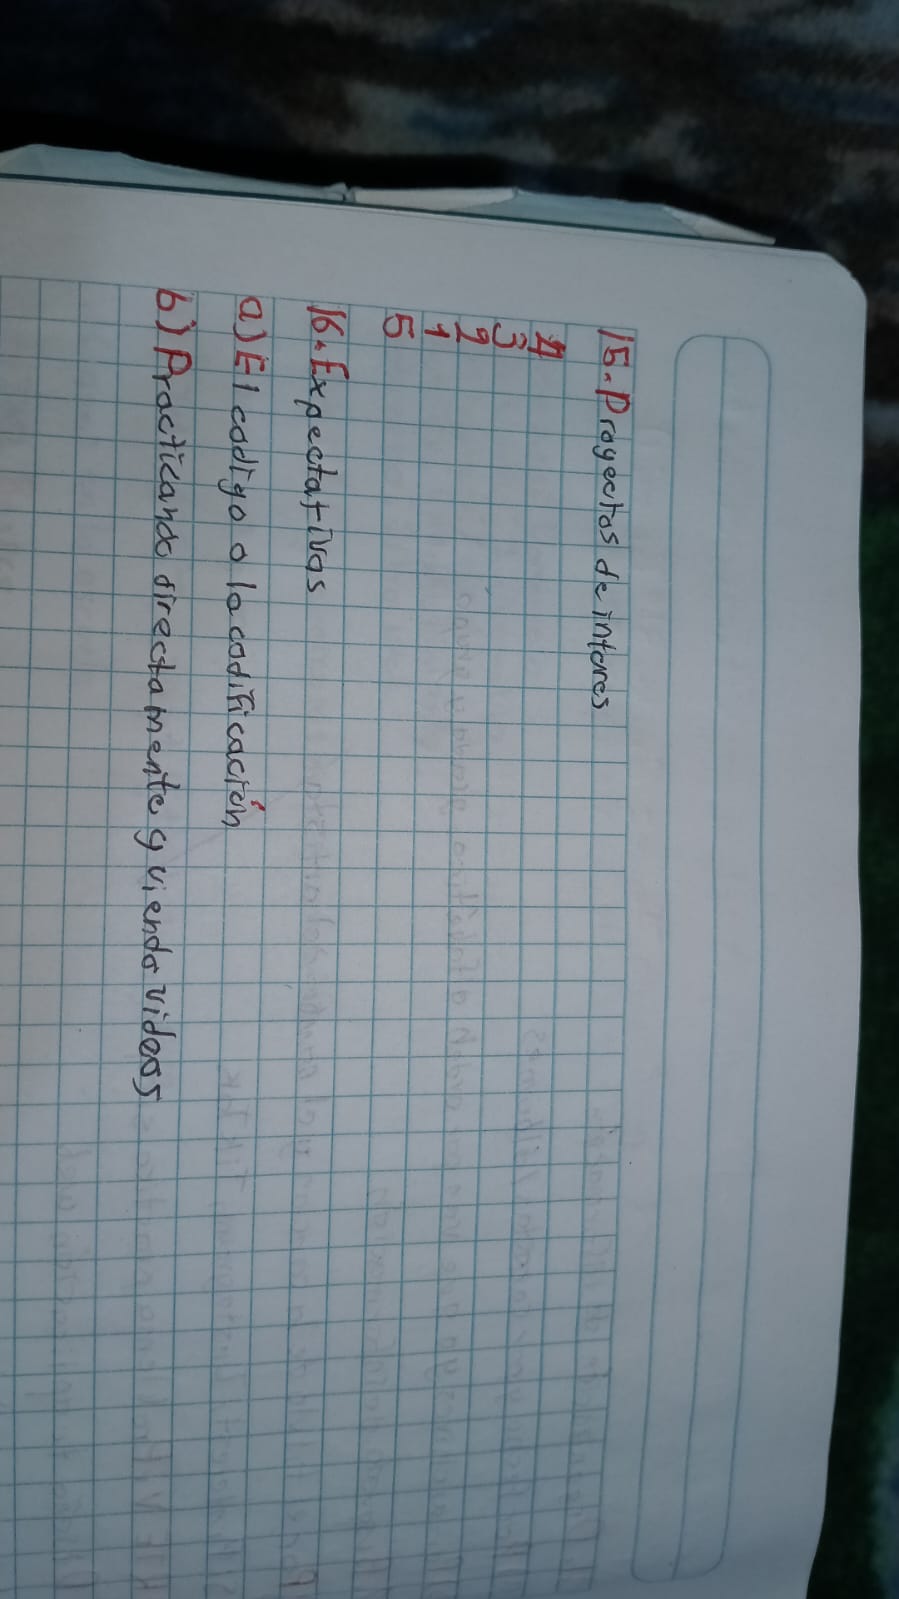 15. Proyectos de interes
4
3
2
1
5
16. Expectativas
a) El codigo o la codificación
b) Practicando directamente y viendo videos